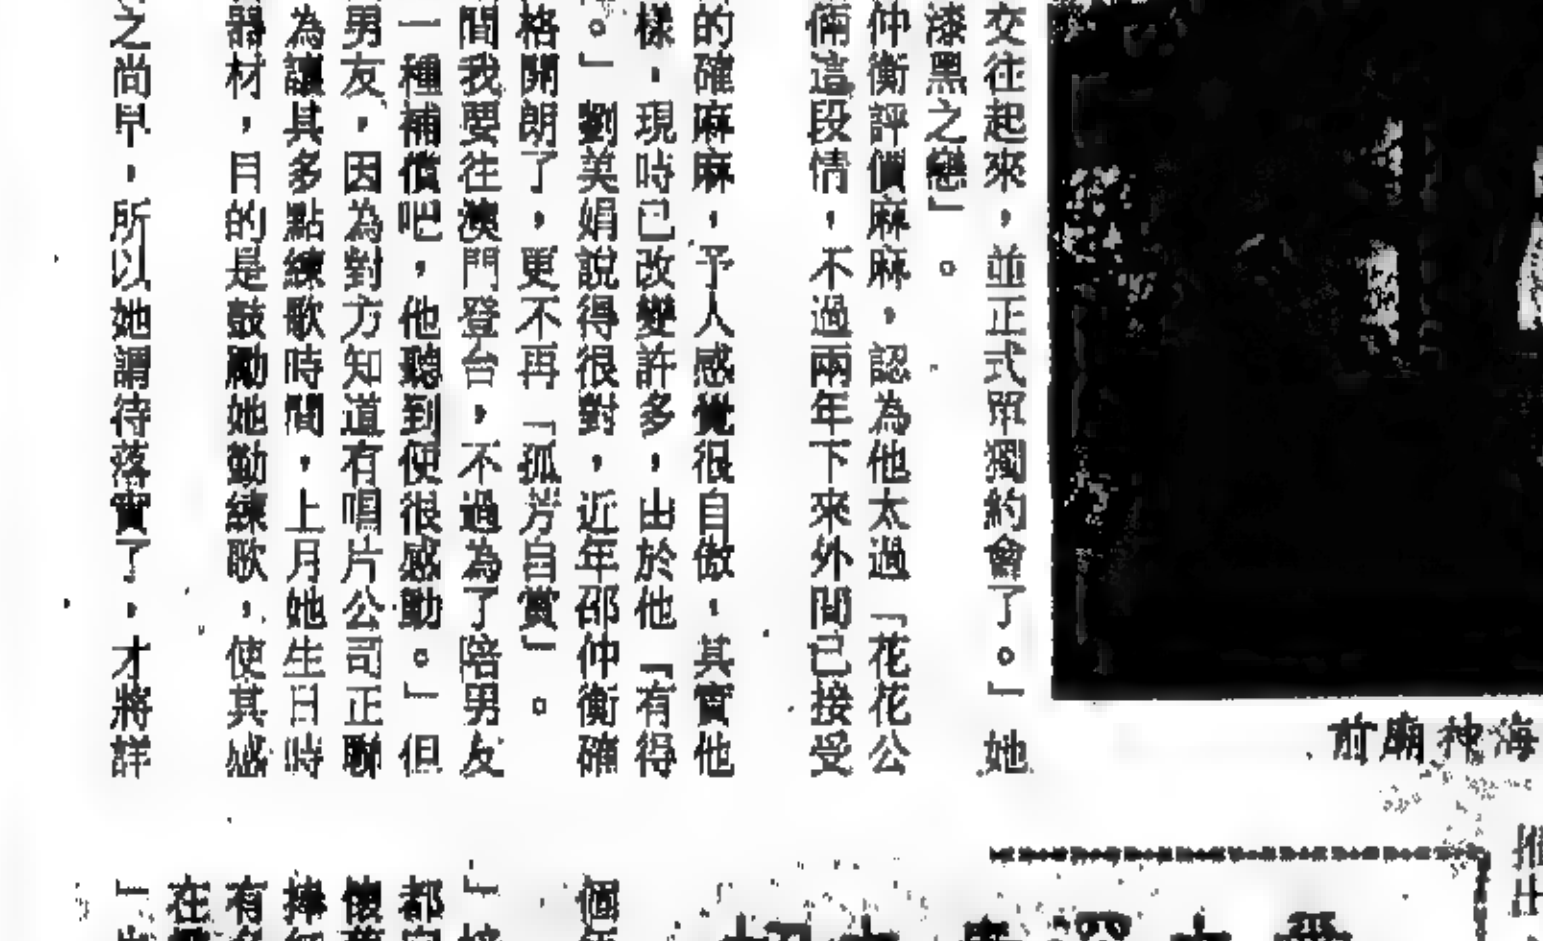 交往起來，並正式單獨約會了。」她
漆黑之戀」。
仲衡評價麻麻，認為他太過「花花公
倆這段情，不過兩年下來外間已接受
的確麻麻，予人感覺很自傲，其實他
樣，現時已改變許多，由於他「有得
。」劉美娟說得很對，近年邵仲衡確
格開朗了，更不再「孤芳自賞」。
間我要往澳門登台，不過為了陪男友
一種補償吧，他聽到便很感動。」但
男友，因為對方知道有唱片公司正聯
為讓其多點練歌時間，上月她生日時
器材，目的是鼓勵她勤練歌，使其感
之尚早，所以她謂待落實了，才將詳
前廟神海
推出
個
都
懷
捧
有
在